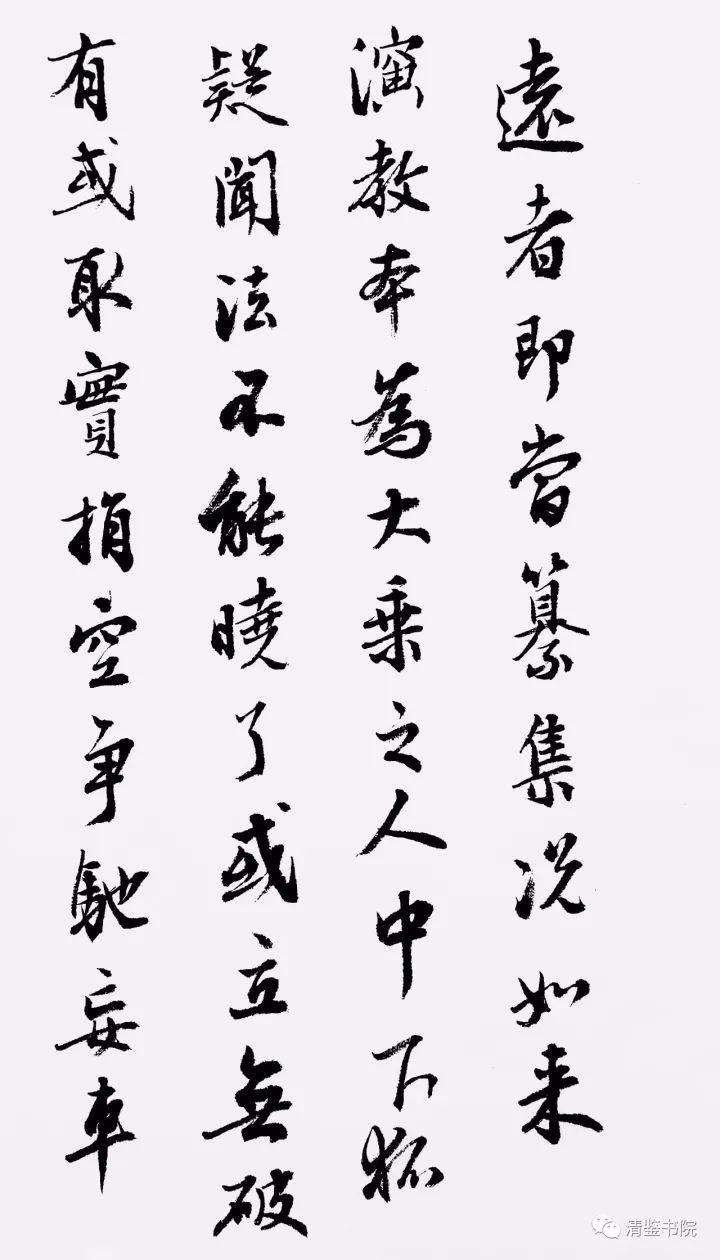 遠者即當纂集況如来
演教本為大乗之人中下狐
疑聞法不能曉了或立無破
有或取實捐空争馳妄車
清鉴书院